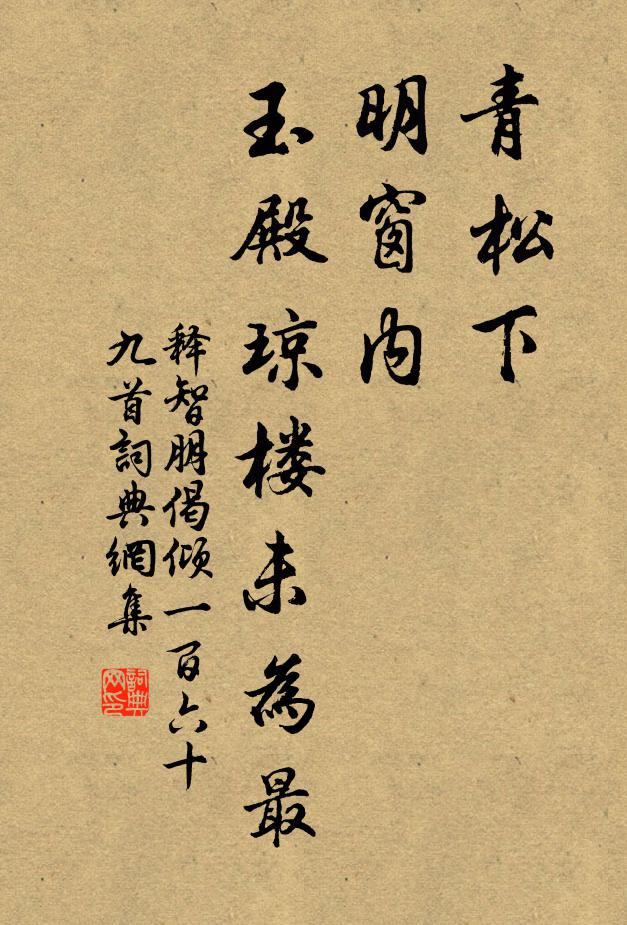 青松下
明窗内
玉殿琼楼未為最
释智朋偈倾一百六十
九首詞典網集
詞典网印